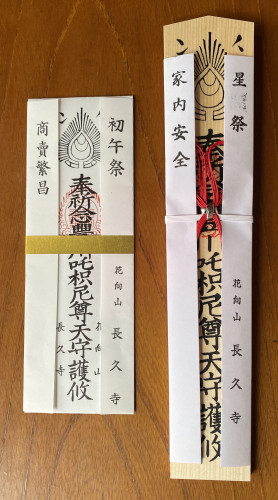 初午祭
花向山 長久寺
奉祈念豐川吒枳尼尊天守護攸
商賣繁昌
長久寺
星祭
花向山 長久寺
奉
吒枳尼尊天守護攸
家内安全